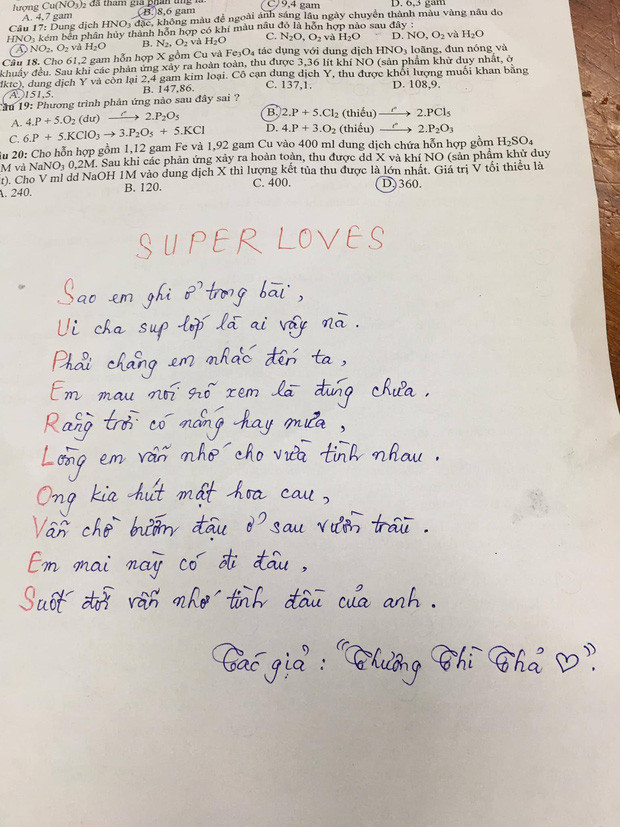 lượng Cu(NO₃)₂ đã tham gia phản ứng là.
A. 4,7 gam B. 8,6 gam C. 9,4 gam D. 6,3 gam
Câu 17: Dung dịch HNO₃ đặc, không màu để ngoài ánh sáng lâu ngày chuyển thành màu vàng nâu do
HNO₃ kém bền phân hủy thành hỗn hợp có khí màu nâu đỏ là hỗn hợp nào sau đây :
A. NO₂, O₂ và H₂O B. N₂, O₂ và H₂O C. N₂O, O₂ và H₂O D. NO, O₂ và H₂O
Câu 18. Cho 61,2 gam hỗn hợp X gồm Cu và Fe₃O₄ tác dụng với dung dịch HNO₃ loãng, đun nóng và
khuấy đều. Sau khi các phản ứng xảy ra hoàn toàn, thu được 3,36 lít khí NO (sản phẩm khử duy nhất, ở
đktc), dung dịch Y và còn lại 2,4 gam kim loại. Cô cạn dung dịch Y, thu được khối lượng muối khan bằng
A. 151,5. B. 147,86. C. 137,1. D. 108,9.
Câu 19: Phương trình phản ứng nào sau đây sai ?
A. 4.P + 5.O₂ (dư) t° → 2.P₂O₅ B. 2.P + 5.Cl₂ (thiếu) t° → 2.PCl₅
C. 6.P + 5.KClO₃ → 3.P₂O₅ + 5.KCl D. 4.P + 3.O₂ (thiếu) t° → 2.P₂O₃
âu 20: Cho hỗn hợp gồm 1,12 gam Fe và 1,92 gam Cu vào 400 ml dung dịch chứa hỗn hợp gồm H₂SO₄
M và NaNO₃ 0,2M. Sau khi các phản ứng xảy ra hoàn toàn, thu được dd X và khí NO (sản phẩm khử duy
t). Cho V ml dd NaOH 1M vào dung dịch X thì lượng kết tủa thu được là lớn nhất. Giá trị V tối thiểu là
A. 240. B. 120. C. 400. D. 360.
SUPER LOVES
Sao em ghi ở trong bài ,
Ui cha sup lốp là ai vậy nà .
Phải chăng em nhắc đến ta ,
Em mau nói rõ xem là đúng chưa .
Rằng trời có nắng hay mưa ,
Lòng em vẫn nhớ cho vừa tình nhau .
Ong kia hút mật hoa cau ,
Vẫn chờ bướm đậu ở sau vườn trầu .
Em mai này có đi đâu ,
Suốt đời vẫn nhớ tình đầu của anh .
Tác giả : "Thương Thì Thả ♡".